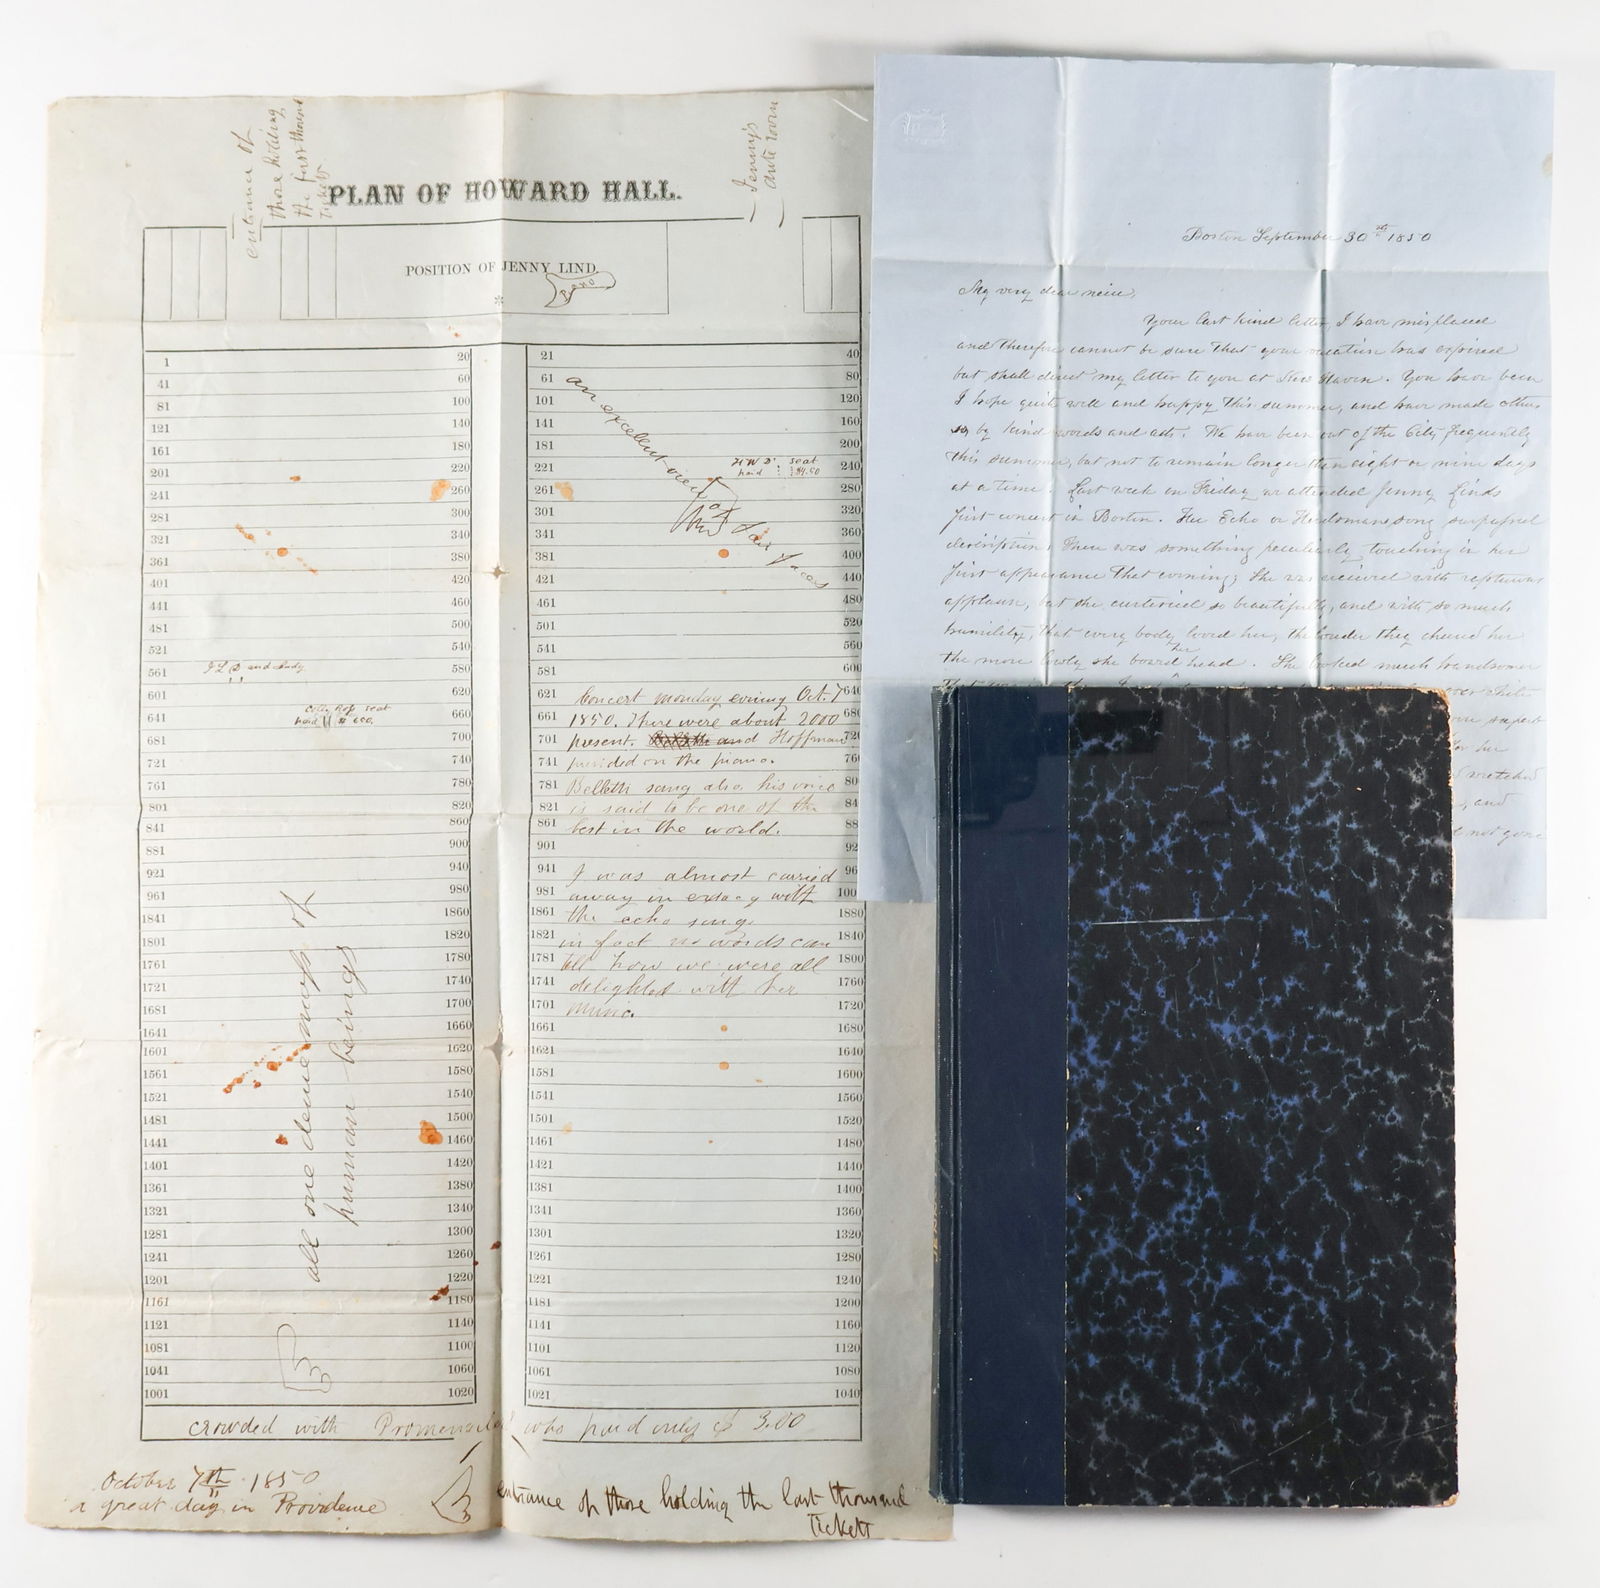 entrance of
those holding
the first thousand
Tickets
Jenny's
ante room
PLAN OF HOWARD HALL.
POSITION OF JENNY LIND.
*
1 20 21 40
41 60 61 80
81 100 101 120
121 140 141 160
161 180 181 200
201 220 221 240
241 260 261 280
281 300 301 320
321 340 341 360
361 380 381 400
401 420 421 440
441 460 461 480
481 500 501 520
521 540 541 560
561 580 581 600
601 620 621 640
641 660 661 680
681 700 701 720
721 740 741 760
761 780 781 80
801 820 821 84
841 860 861 88
881 900 901 92
921 940 941 96
961 980 981 100
1841 1860 1861 1880
1801 1820 1821 1840
1761 1780 1781 1800
1721 1740 1741 1760
1681 1700 1701 1720
1641 1660 1661 1680
1601 1620 1621 1640
1561 1580 1581 1600
1521 1540 1541 1560
1481 1500 1501 1520
1441 1460 1461 1480
1401 1420 1421 1440
1361 1380 1381 1400
1321 1340 1341 1360
1281 1300 1301 1320
1241 1260 1261 1280
1201 1220 1221 1240
1161 1180 1181 1200
1121 1140 1141 1160
1081 1100 1101 1120
1041 1060 1061 1080
1001 1020 1021 1040
an excellent view of
fair faces
seat
paid $4.00
and Lady
seat
paid
Concert monday evening Oct. 7
1850. There were about 2000
present. and Hoffman
presided on the piano.
Belletti sang also, his voice
is said to be one of the
best in the world.
I was almost carried
away in extacy with
the echo song
in fact no words can
tell how we were all
delighted with her
music.
all one dense mass of
human beings
crowded with Promenaders who paid only $ 3.00
October 7th 1850
a great day in Providence
entrance of those holding the last thousand
Tickets
Boston September 30th 1850
My very dear niece,
Your last kind letter, I have misplaced
and therefore cannot be sure that your vacation has expired
but shall direct my letter to you at New Haven. You have been
I hope quite well and happy this summer, and have made others
so by kind words and acts. We have been out of the City frequently
this summer, but not to remain longer than eight or nine days
at a time. Last week on Friday we attended Jenny Linds
first concert in Boston. Her Echo or Herdsmans song surpassed
description, there was something peculiarly touching in her
first appearance that evening; She was received with rapturous
applause, but she curtsied so beautifully, and with so much
humility, that every body loved her, the louder they cheered her
the more lowly she bowed her head. She looked much handsomer
for her
wretched
, and
not gone